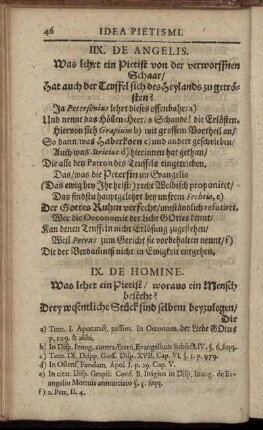 46 IDEA PIETISMI.
IIX. DE ANGELIS.
Was lehrt ein Pietist von der verworffnen
Schaar/
Hat auch der Teuffel sich des Heylands zu getrö-
sten?
Ja Petersenius lehrt dieses offenbahr/a)
Und nennt das Höllen-Heer/ ô Schande! die Erlösten.
Hiervon sich Grapium b) mit grossem Vortheil an/
So dann/was Haberkorn c) und andre geschrieben/
Auch/was Stricius d) hierinnen hat gethan/
Die alle den Patron des Teuffels eingetrieben.
Das/was die Petersin im Evangelio
(Das ewig bey Ihr heist) recht Weibisch proponiret/
Das findstu hauptgelehrt bey unsrem Fechtio, e)
Der Gottes Ruhm verficht/umständlich refutiret.
Wer die Oeconomie der Liebe GOttes kennt/
Kan denen Teuffeln nicht Erlösung zugestehen/
Weil Petrus zum Gericht sie vorbehalten nennt/ f)
Die der Verdammniß nicht in Ewigkeit entgehen.
IX. DE HOMINE.
Was lehrt ein Pietist/ woraus ein Mensch
bestehe?
Drey wesentliche Stück sind selbem beyzulegen/
Die
a) Tom. I. Apocatast. passim. In Oeconom. der Liebe GOttes
p. 109. & alibi.
b) In Disp. Inaug. contra Euangelium Subject. IV. §. 6. sqq.
c) Tom. IX. Disp. Giess. Disp. XVII. Cap. VI. §. 1. p. 979.
d) In Ostens. Fundam. Apol. I. p. 29. Cap. V.
e) In cit. Disp. Grapii: Conf. B. Insignis in Disp. Inaug. de Ev-
angelio Mortuis annunciato §. 5. sqq.
f) 2. Petr. II, 4.